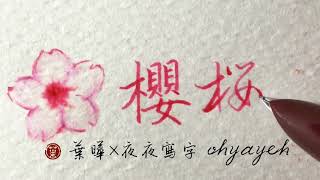 櫻桜
葉曄×夜夜寫字 ohyayeh